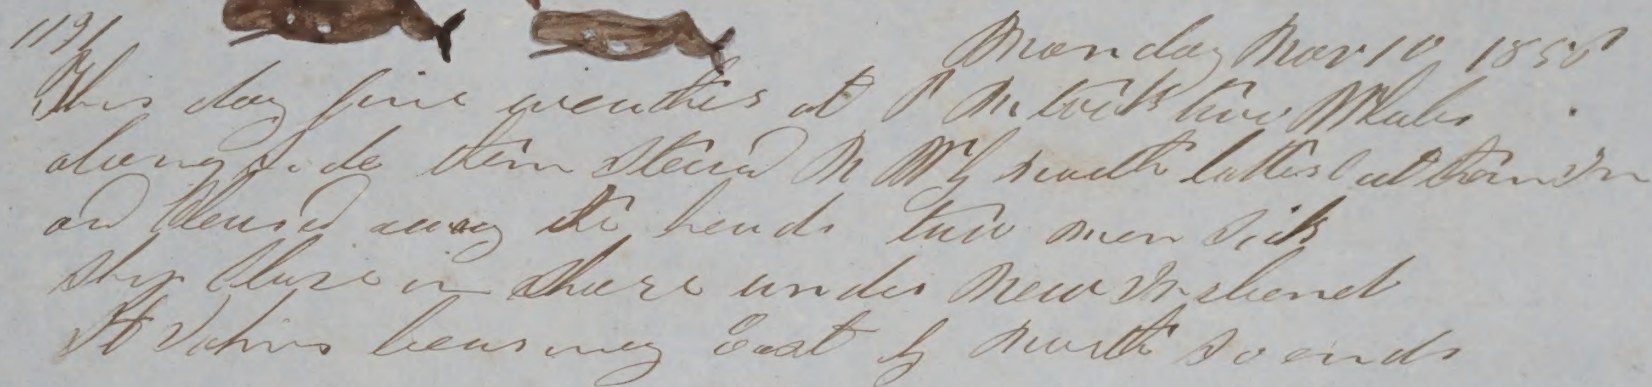 1191
Monday Nov 10 1856
This day fine weather at P M took two Whales
along side then Steard N W by north latter Cut them In
and Cleared away the heads two men Sick
Ship Close in Shore under New Ireland
St Johns bearing East by North so ends